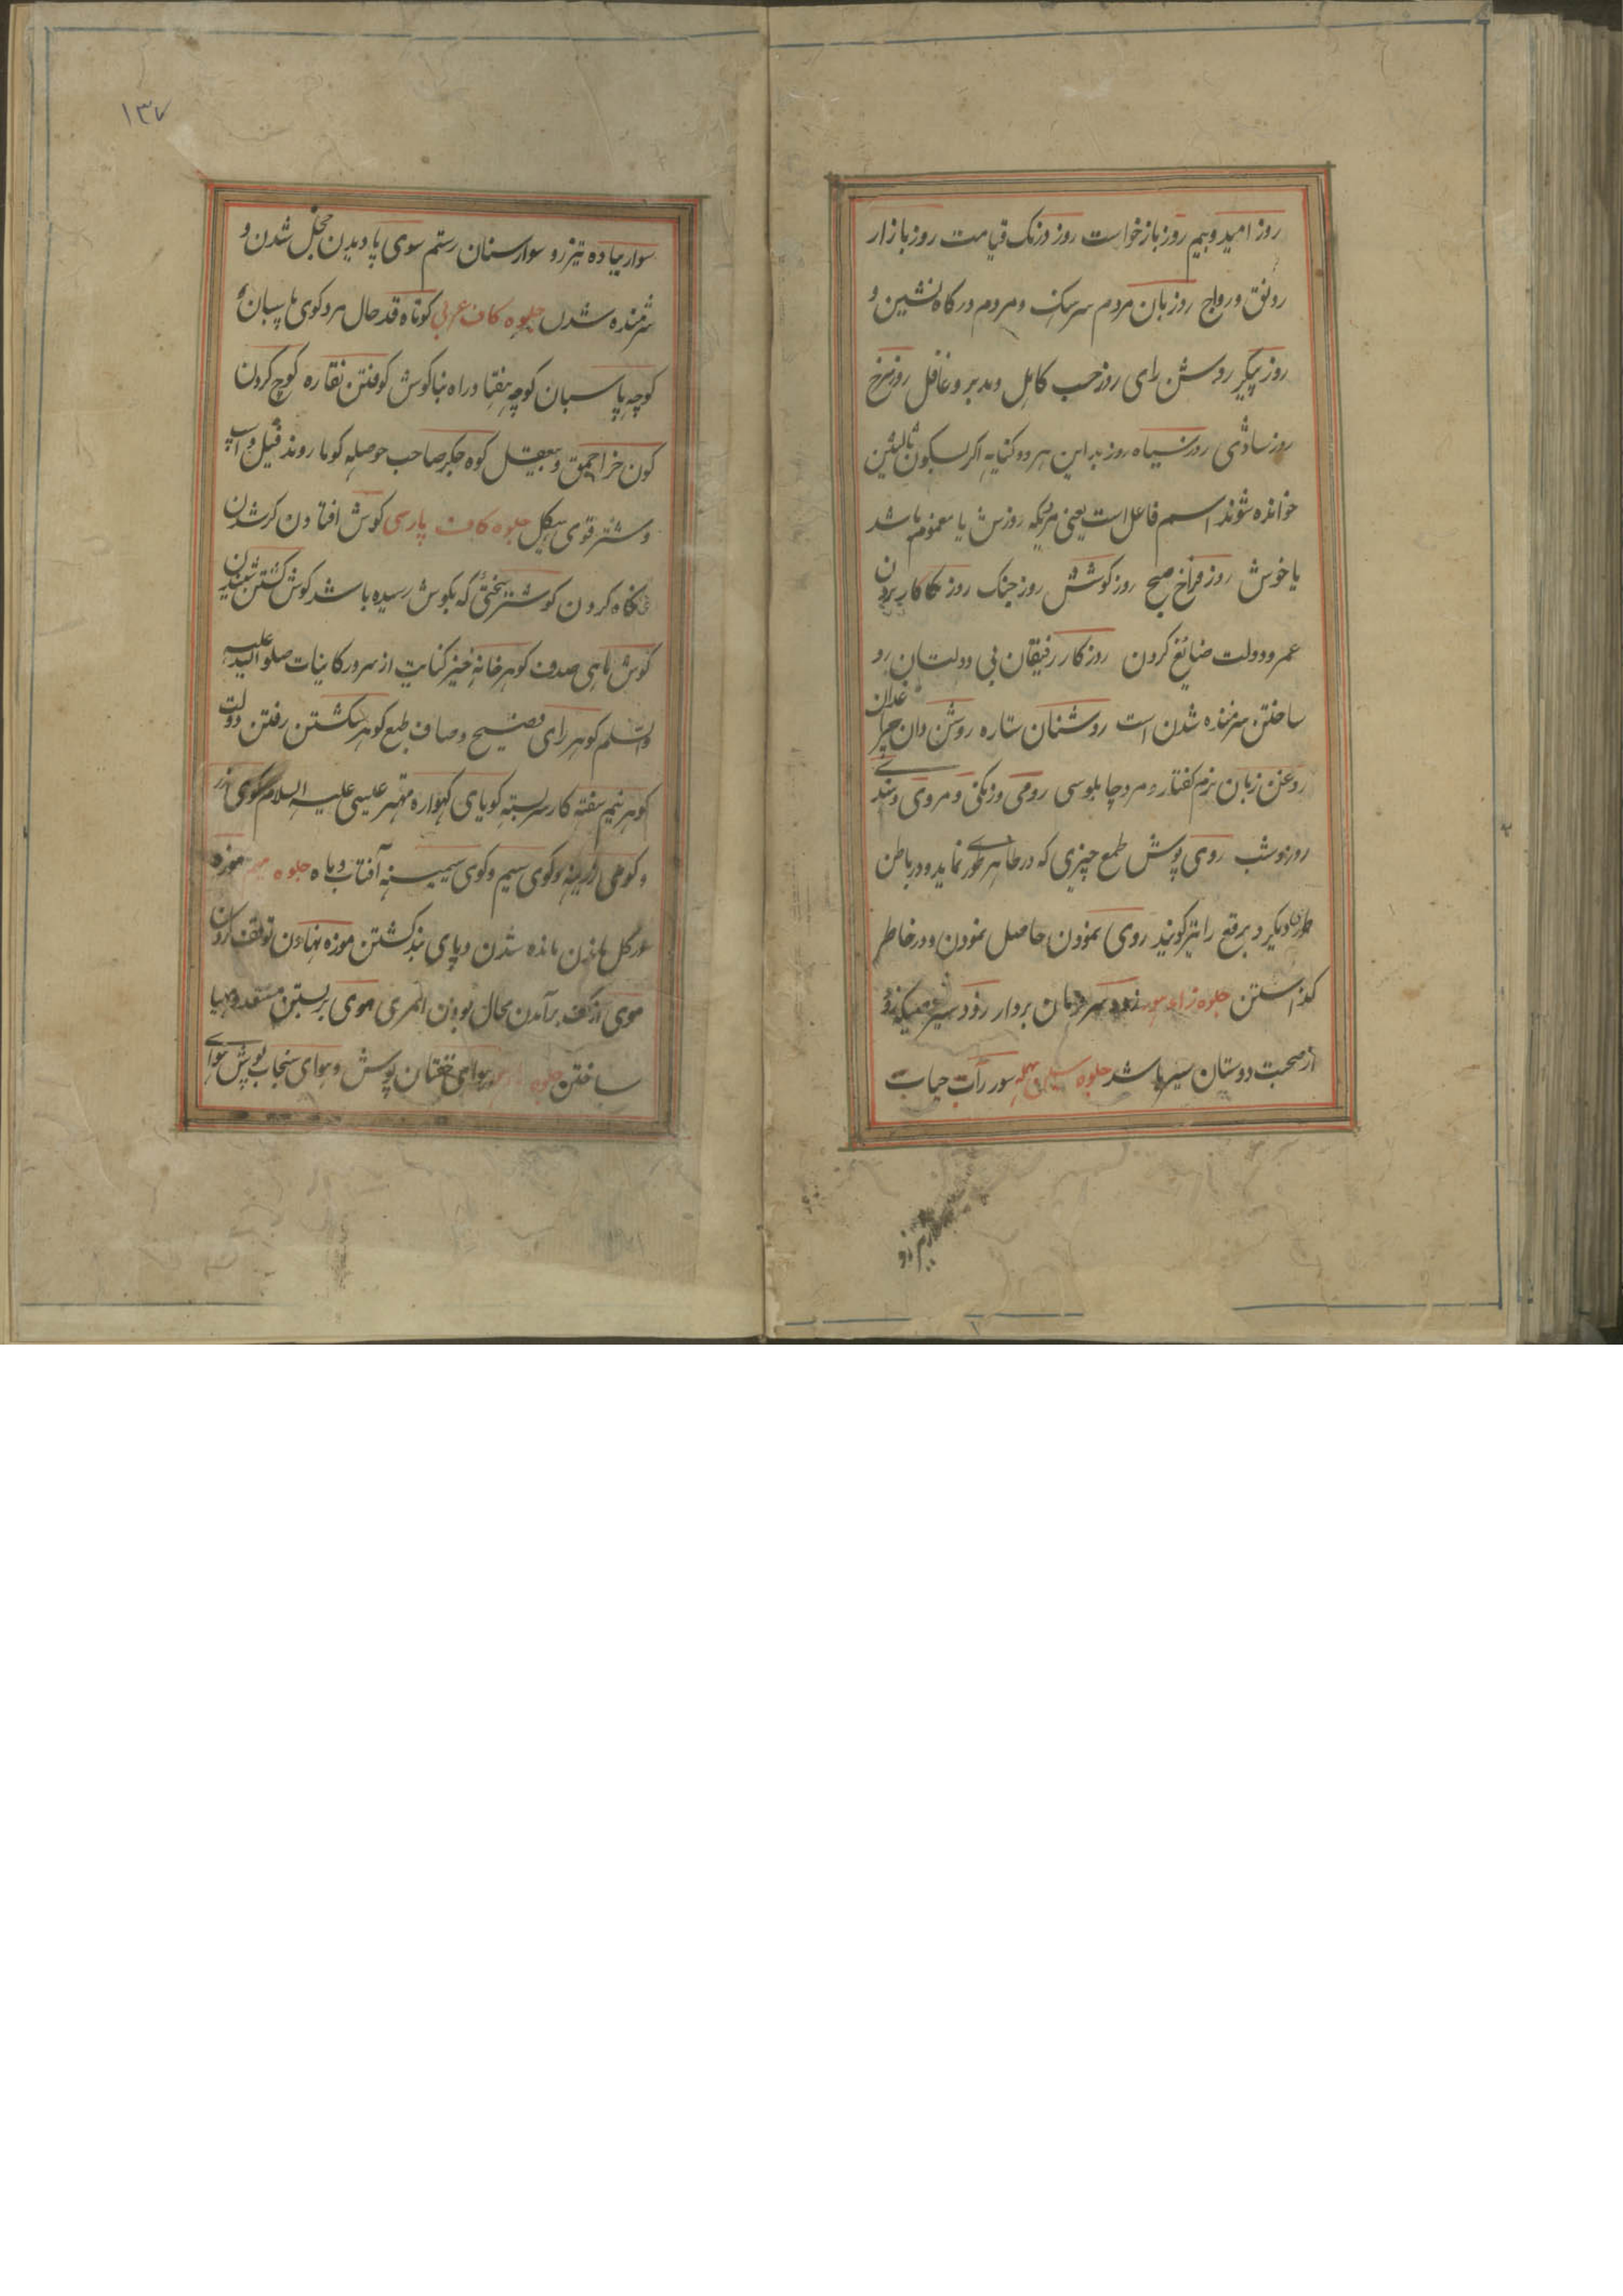 روز امید و بیم روز بازخواست روز درنک قیامت روز بازار
رونق و رواج روزبان مردم سرهنک و مردم درکاه نشین و
روز پیکر روشن رای روز حسب کاهل و مدبر و غافل روز نرخ
روز سادشی روز سیاه روز بد این هر دو کنایه اکر بسکون ثالثین
خوانده شوند اسم فاعل است یعنی هریکه روزش یا مغموم باشد
یا خوش روز فراخ صبح روز کوشش روز جنک روز کاکار بردن
عمر و دولت ضائع کردن روزکار رفیقان بی دولتان رو
ساختن شرمنده شدن است روشنان ستاره روشن دان چراغدان
روغن زبان نرم کفتار و مرد چاپلوسی رومی و زنکی و مروی و سندی
روز و شب روی پوش طمع چیزی که در ظاهر طوری نماید و در باطن
طور دیکر و برقع را نیز کویند روی نمودن حاصل نمودن و در خاطر
کذاستن جلوه زاء زود سر بردار زود سیر
از صحبت دوستان سیر باشد جلوه سین مهمله سور رآب حیات
۱۳۷
سوار پیاده تیزرو سوارسنان رستم سوی پا دیدن خجل شدن و
شرمنده شدن جلوه کاف عربی کوتاه قد حال مرد کوی پاسبان و
کوچه پاسبان کوچه هفتاد راه بناکوش کوفتن نقاره کوچ کردن
کون خر احمق و بیعقل کوه جکر صاحب حوصله کوها روند فیل و اسپ
و شتر قوی هیکل جلوه کاف پارسی کوش افتادن کر شدن
نکاه کردن کوشتر سختی که بکوش رسیده باشد کوش کشتن شنیدن
کوش ماهی صدف کوهر خانه خیز کنایت از سرور کاینات صلو الله علیه
والسلم کوهر رای فصیح و صاف طبع کوهر شکستن رفتن دولت
کوهر نیم سفته کار سربسته کویای کهواره مهتر عیسی علیه السلام کوی زر
و کوی زرینه و کوی سیم و کوی سیمینه آفتاب و ماه جلوه میم موزه
در کل ماندن مانده شدن و پای بند کشتن موزه نهادن توقف کردن
موی از کف برآمدن محال بودن امری موی بربستن مستعد و مهیا
ساختن جلوه هوای خفتان پوش و هوای سنجاب پوش هوای